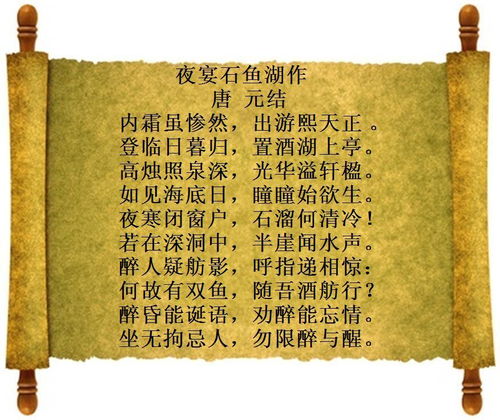 夜宴石鱼湖作
唐 元结
内霜虽惨然，出游熙天正 。
登临日暮归，置酒湖上亭。
高烛照泉深，光华溢轩楹。
如见海底日，瞳瞳始欲生。
夜寒闭窗户，石溜何清冷！
若在深洞中，半崖闻水声。
醉人疑舫影，呼指递相惊：
何故有双鱼，随吾酒舫行？
醉昏能诞语，劝醉能忘情。
坐无拘忌人，勿限醉与醒。